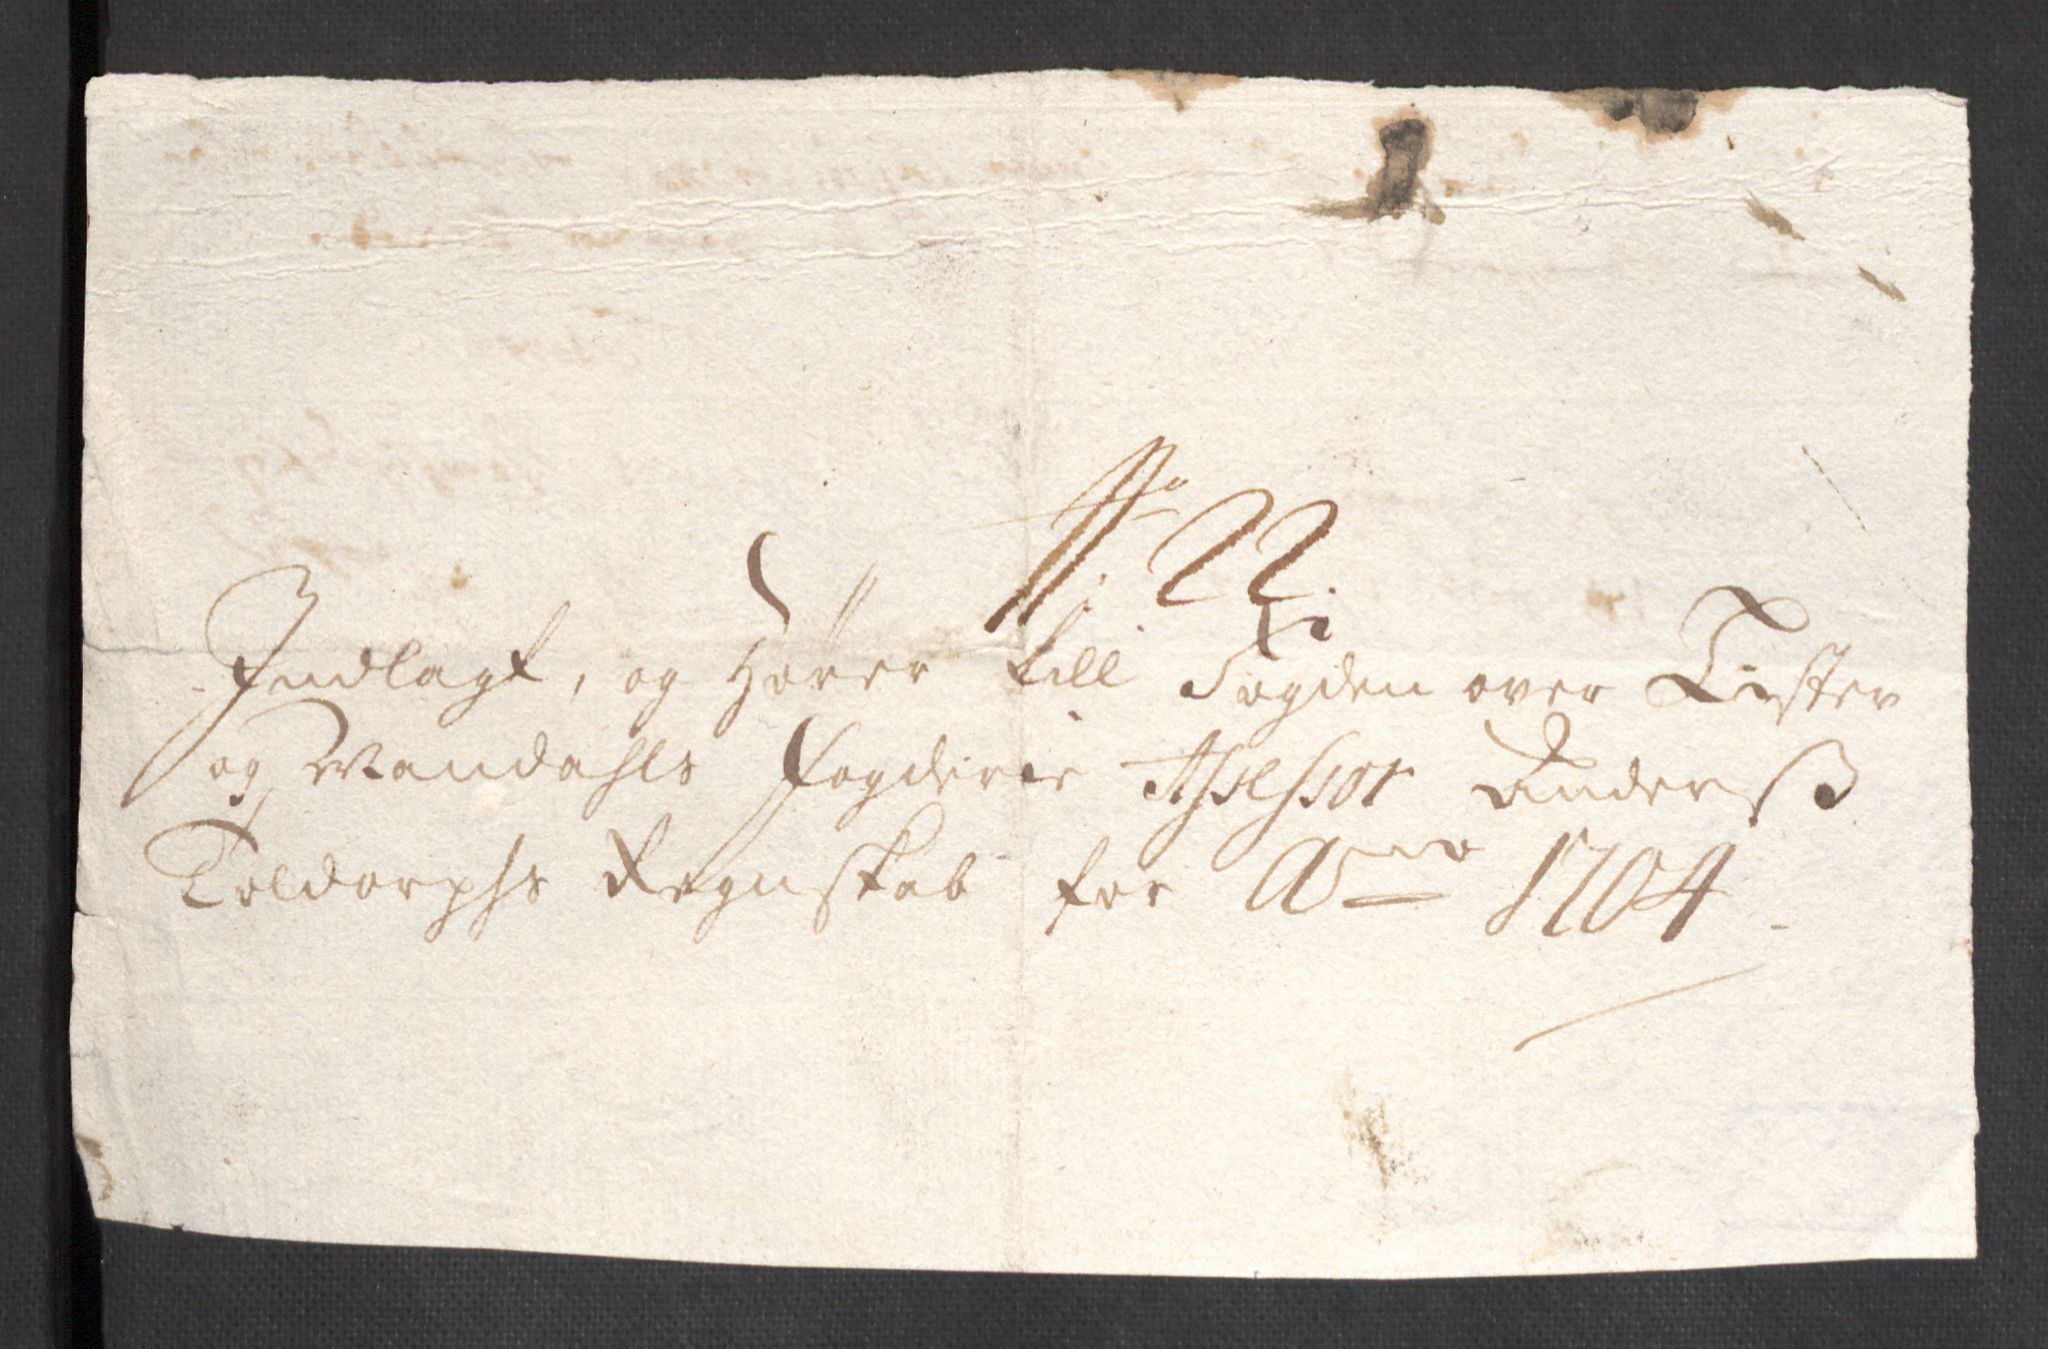 No 22.
Indlagt, og Hører till Fogden over Lister
og Mandahls Fogderie Assessor Anderß
Toldorphs Regnskab for Ao 1704.